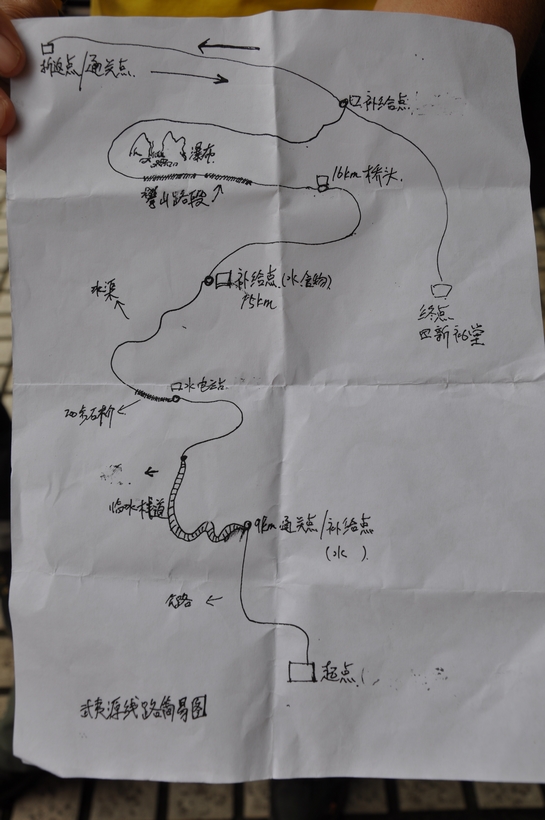 折返点/通关点.
补给点.
瀑布
登山路段
16km 桥头.
补给点(水.食物)
15km
终点.
四新礼堂
水渠
水电站
200多石阶
临水栈道
9km 通关点/补给点
(水 ).
公路
起点(
武夷源线路简易图